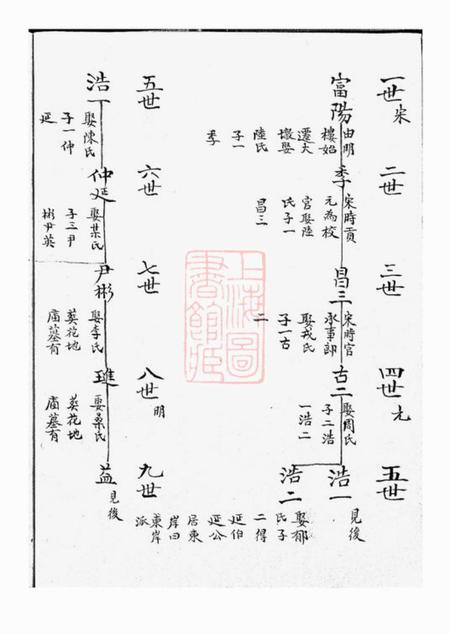 一世 宋
二世
三世
四世 元
五世
富陽
由明
樓始
遷大
墩娶
陸氏
子一
季
季
宋時貢
元為校
官娶陸
氏子一
昌三
昌三
宋時官
承事郎
娶戎氏
子一古
二
古二
娶周氏
子二浩
一浩二
浩一
見後
浩二
娶郁
氏子
二得
延伯
延公
居東
岸曰
東岸
派
五世
六世
七世
八世 明
九世
浩一
娶陳氏
子一仲
延
仲延
娶葉氏
子三尹
彬尹英
尹彬
娶李氏
葬花地
庙墓有
璡
娶桑氏
葬花地
庙墓有
益
見後
上海圖
書館藏